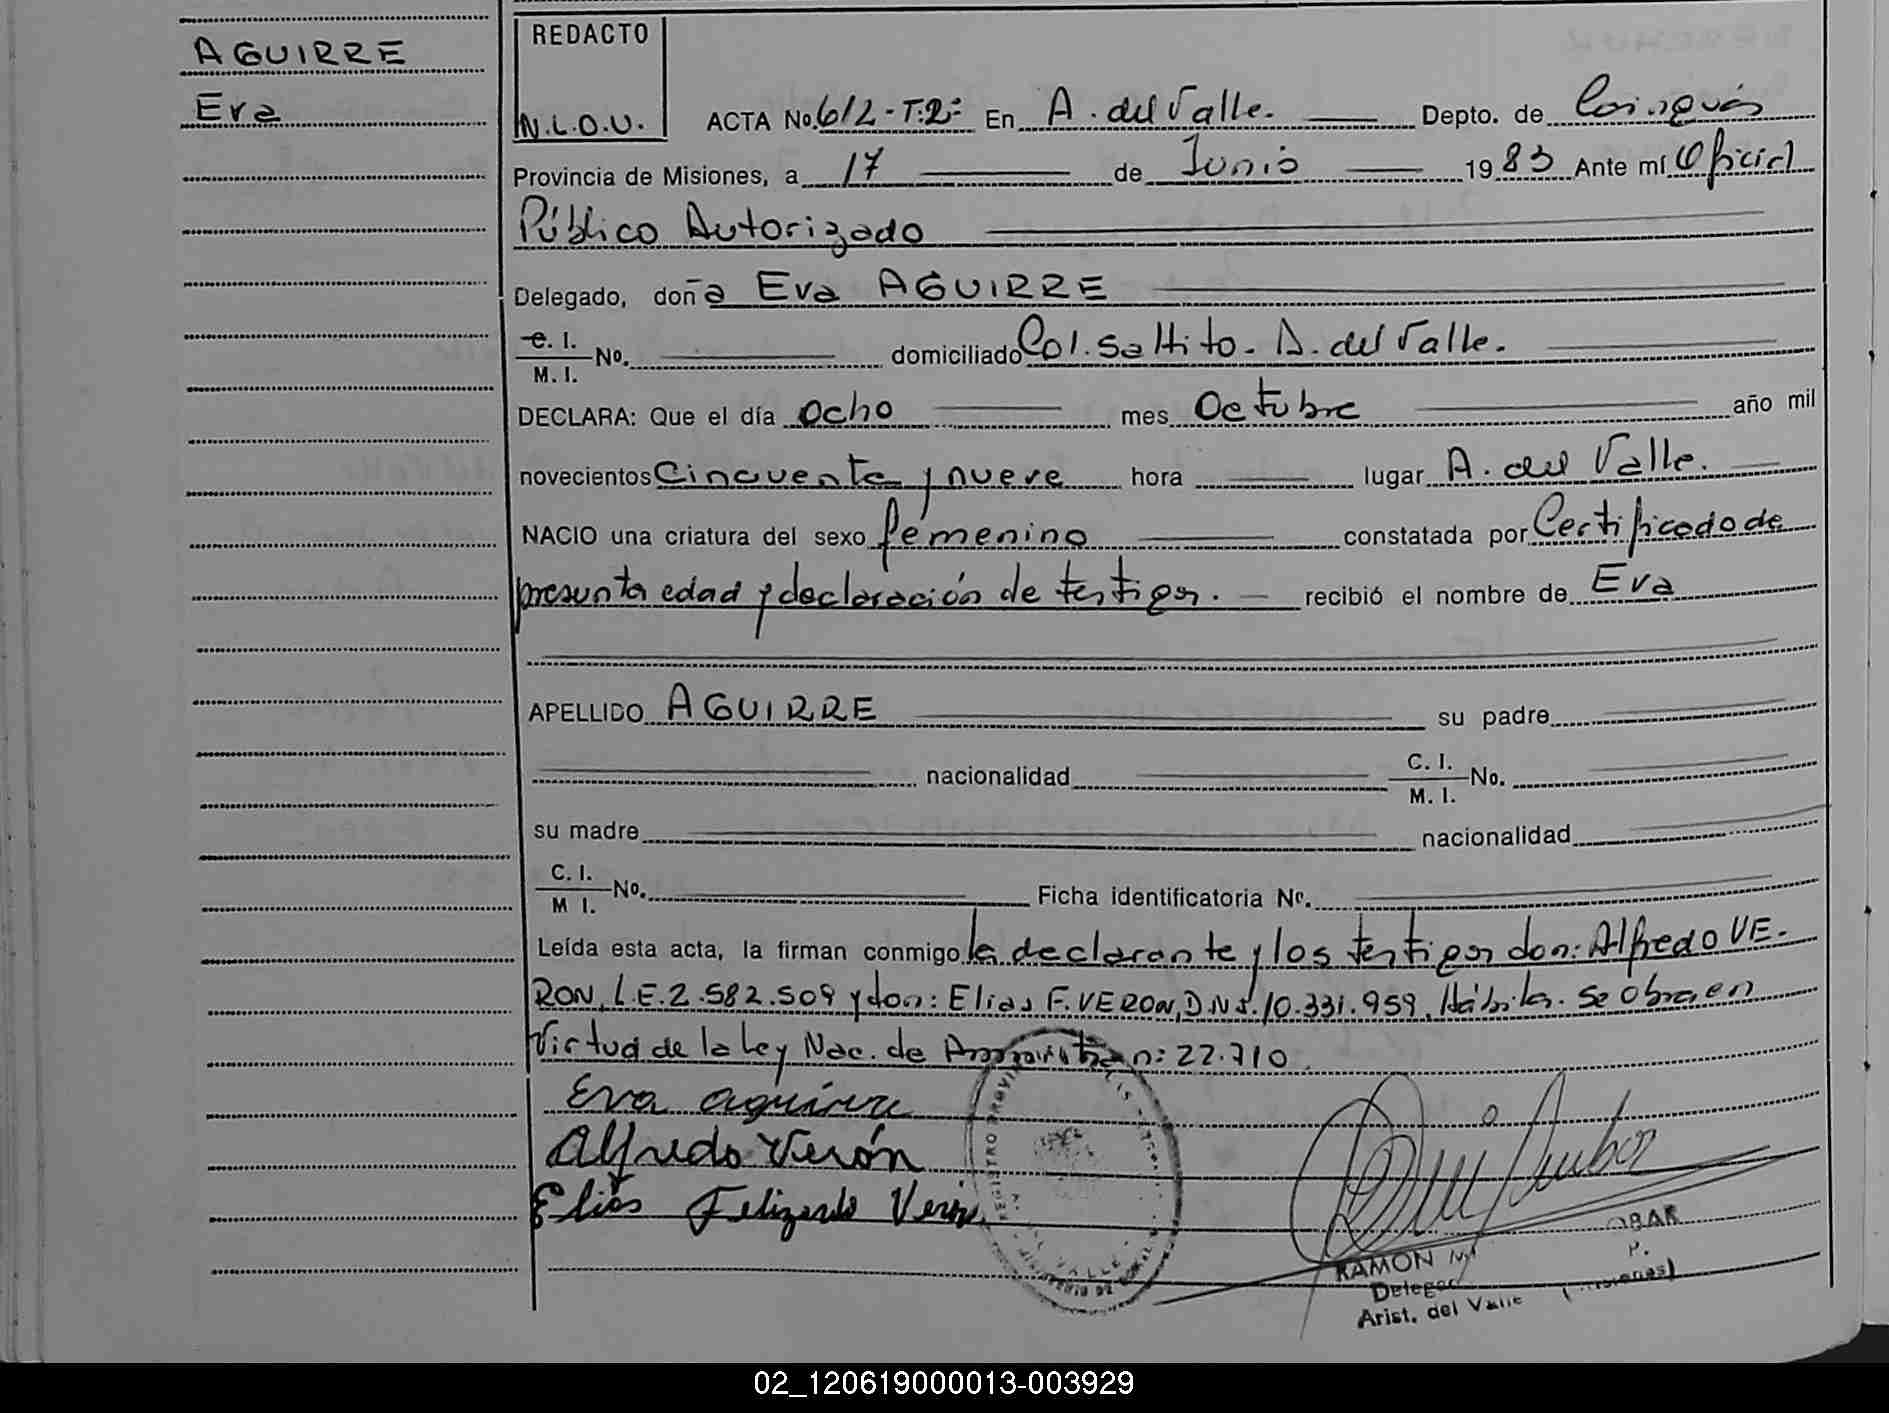 AGUIRRE
Eva
REDACTO
N.L.O.U.
ACTA No. 612-T:2: En A. del Valle. Depto. de Cainguás
Provincia de Misiones, a 17 de Junio 1983 Ante mí Oficial
Público Autorizado
Delegado, doña Eva AGUIRRE
C. I.
M. I.
No. domiciliado Col. Saltito. A. del Valle.
DECLARA: Que el día ocho mes Octubre año mil
novecientos Cincuenta y nueve hora lugar A. del Valle.
NACIO una criatura del sexo femenino constatada por Certificado de
presunta edad y declaración de testigos. recibió el nombre de Eva
APELLIDO AGUIRRE su padre
nacionalidad C. I.
M. I. No.
su madre nacionalidad
C. I.
M I. No. Ficha identificatoria No.
Leída esta acta, la firman conmigo la declarante y los testigos don: Alfredo VE-
RON, L.E. 2.582.509 y don: Elias F. VERON, D.N.I. 10.331.959, Hábiles. Se obra en
Virtud de la Ley Nac. de n: 22.710
Eva aguirre
Alfredo Verón
Elias Felizardo Verón
REGISTRO
VALLE
RAMON
Arist. del Valle (Misiones)
02_120619000013-003929